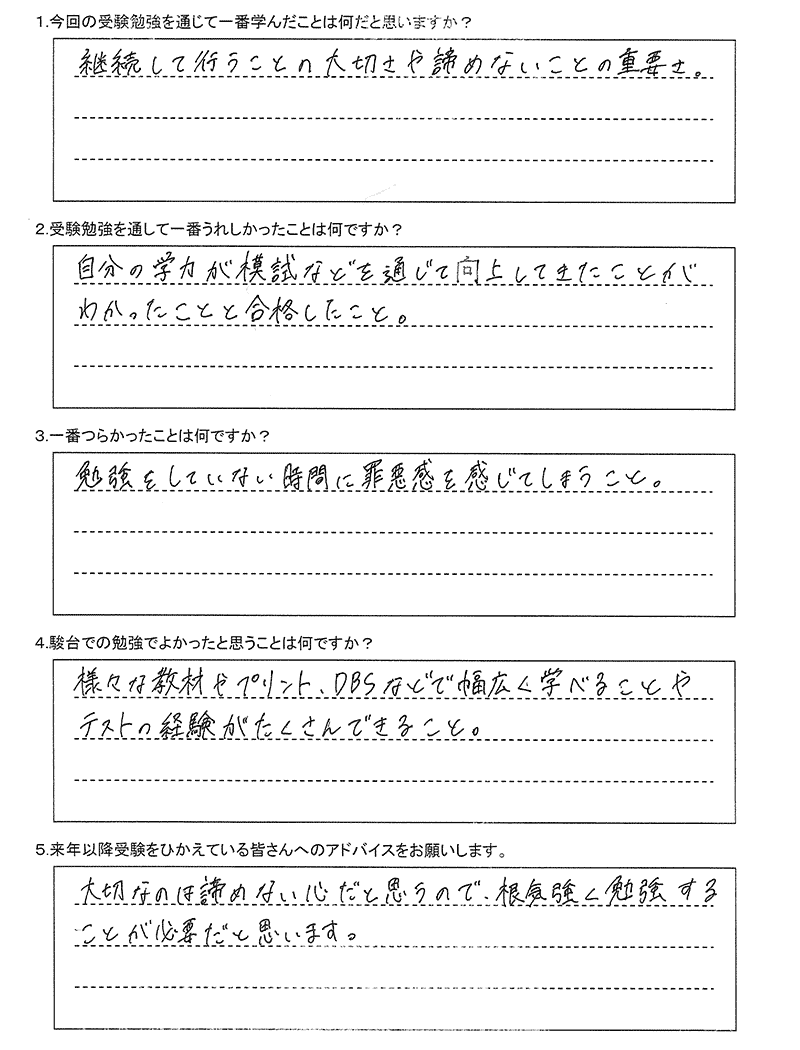 1.今回の受験勉強を通じて一番学んだことは何だと思いますか？
継続して行うことの大切さや諦めないことの重要さ。
2.受験勉強を通して一番うれしかったことは何ですか？
自分の学力が模試などを通じて向上してきたことが
わかったことと合格したこと。
3.一番つらかったことは何ですか？
勉強をしていない時間に罪悪感を感じてしまうこと。
4.駿台での勉強でよかったと思うことは何ですか？
様々な教材やプリント、DBSなどで幅広く学べることや
テストの経験がたくさんできること。
5.来年以降受験をひかえている皆さんへのアドバイスをお願いします。
大切なのは諦めない心だと思うので、根気強く勉強する
ことが必要だと思います。